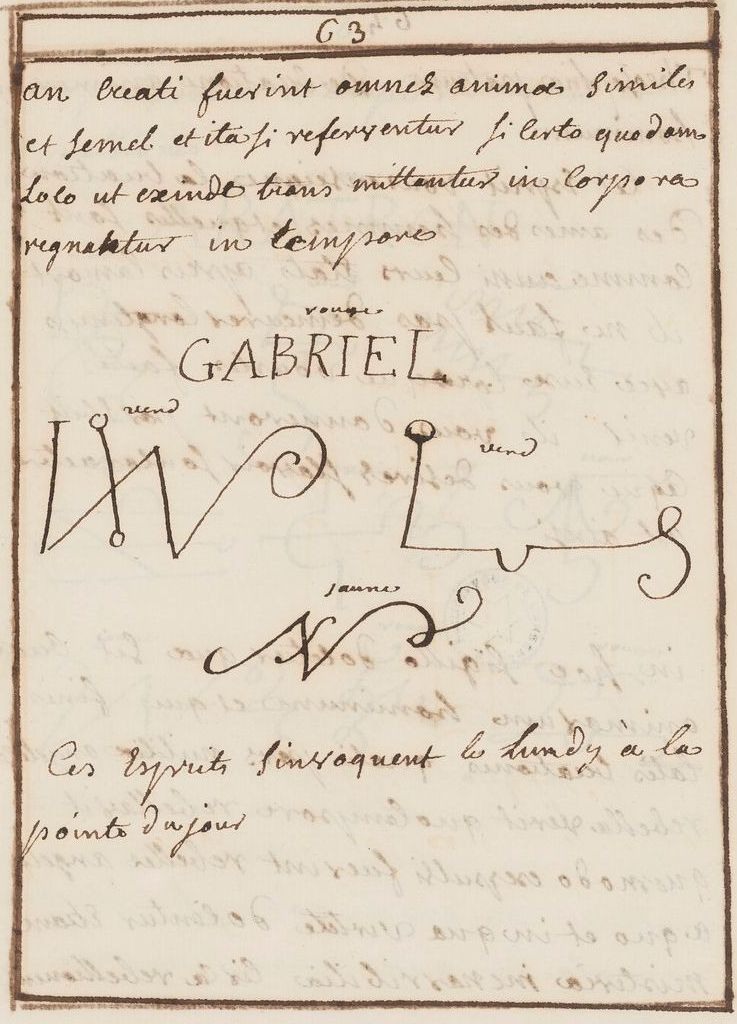 63
an Creati fuerint omnes animæ Similes
et Semel et ita si reserventur si Certo quodam
Loco ut exinde trans mittantur in Corpora
regnantur in tempore
rouge
GABRIEL
verd
verd
jaune
Ces Esprits Sinvoquent le Lundy a la
pointe du jour